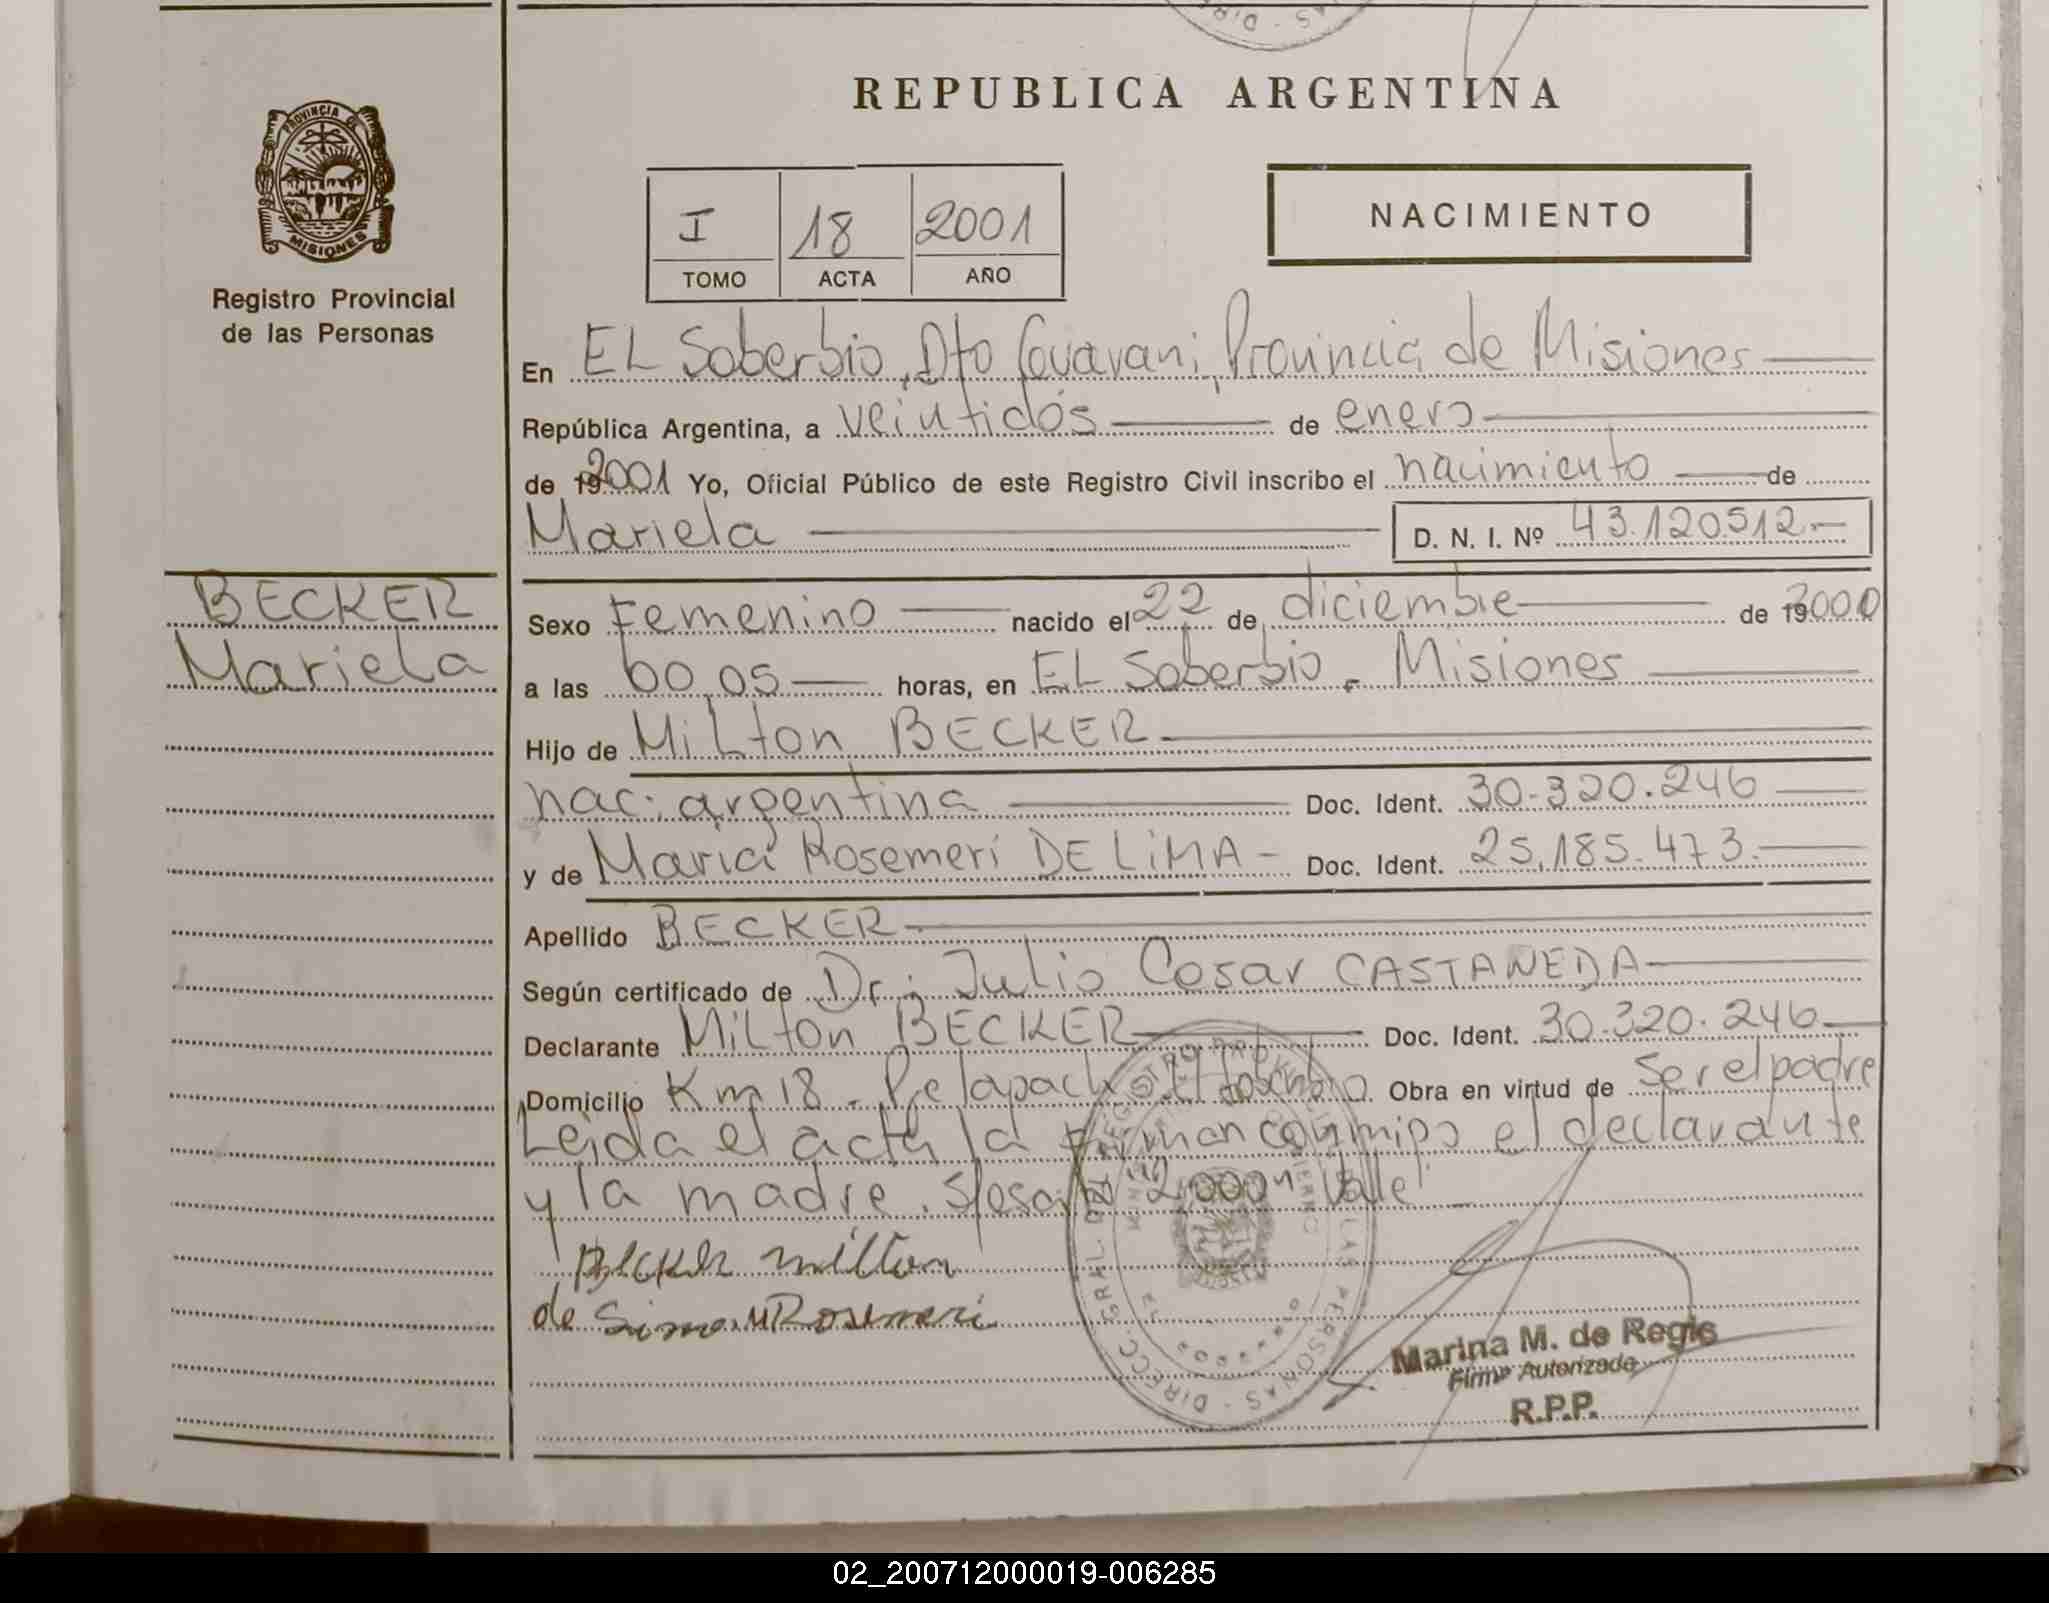 DIRECC. GRAL. DEL REGISTRO PROVINCIAL DE LAS PERSONAS
REPUBLICA ARGENTINA
PROVINCIA DE
MISIONES
Registro Provincial
de las Personas
I 18 2001
TOMO ACTA AÑO
NACIMIENTO
En EL Soberbio, Dto Guarani, Provincia de Misiones
República Argentina, a veintidós de enero
de 192001 Yo, Oficial Público de este Registro Civil inscribo el nacimiento de
Mariela D. N. I. Nº 43.120.512.-
BECKER
Mariela
Sexo Femenino nacido el 22 de diciembre de 192000
a las 00,05 horas, en EL Soberbio - Misiones
Hijo de Milton BECKER
nac: argentina Doc. Ident. 30.320.246
y de Maria Rosemeri DE LiMA - Doc. Ident. 25.185.473.
Apellido BECKER
Según certificado de Dr. Julio Cesar CASTANEDA
Declarante Milton BECKER Doc. Ident. 30.320.246
Domicilio Km 18 - El Soberbio Obra en virtud de ser el padre
Leida el acta la firman conmigo el declarante
y la madre. S/esado "2.000" Vale
Becker milton
de Lima. M Rosemeri
Marina M. de Regis
Firma Autorizada
R.P.P.
02_200712000019-006285